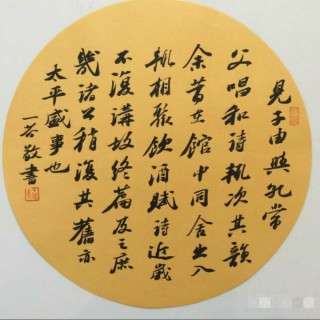 見子由與孔常
父唱和詩輒次其韻
余昔在館中同舍出入
輒相聚飲酒賦詩近歲
不復講故終篇及之庶
幾諸公稍復其舊亦
太平盛事也
一谷敬書